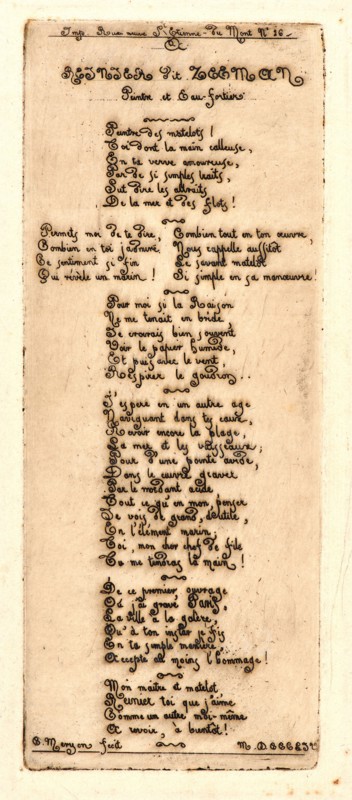 Imp. Rue neuve St Etienne-du Mont No 26.
REINIER dit ZEEMAN
Peintre et Eau-fortier.
Peintre des matelots !
Toi dont la main calleuse,
En ta verve amoureuse,
Par de si simples traits,
Sut dire les attraits
De la mer et des flots !
Permets moi de te dire,
Combien en toi j'admire
Ce sentiment si fin
Qui révèle un marin !
Combien tout en ton œuvre,
Nous rappelle aussitôt
Le savant matelot
Si simple en sa manœuvre !
Pour moi si la Raison
Ne me tenait en bride
Je croirais bien souvent
Voir le papier humide,
Et puis avec le vent
Respirer le goudron..
J'espère en un autre age
Naviguant dans tes eaux,
Revoir encore la plage,
La mer et les vaisseaux;
Pour d'une pointe avide,
Dans le cuivre graver
Par le mordant acide
Tout ce qu'en mon penser
Je vois de grand,
En l'élément marin
Toi, mon cher chef de file
Tu me tendras la main !
De ce premier ouvrage
Où j'ai gravé Paris,
La ville à la galère,
Qu'à ton instar je fis
En ta simple manière
Accepte au moins l'hommage !
Mon maître et matelot
REINIER toi que j'aime
Comme un autre moi-même
Au revoir, à bientôt !
C. Meryon fecit